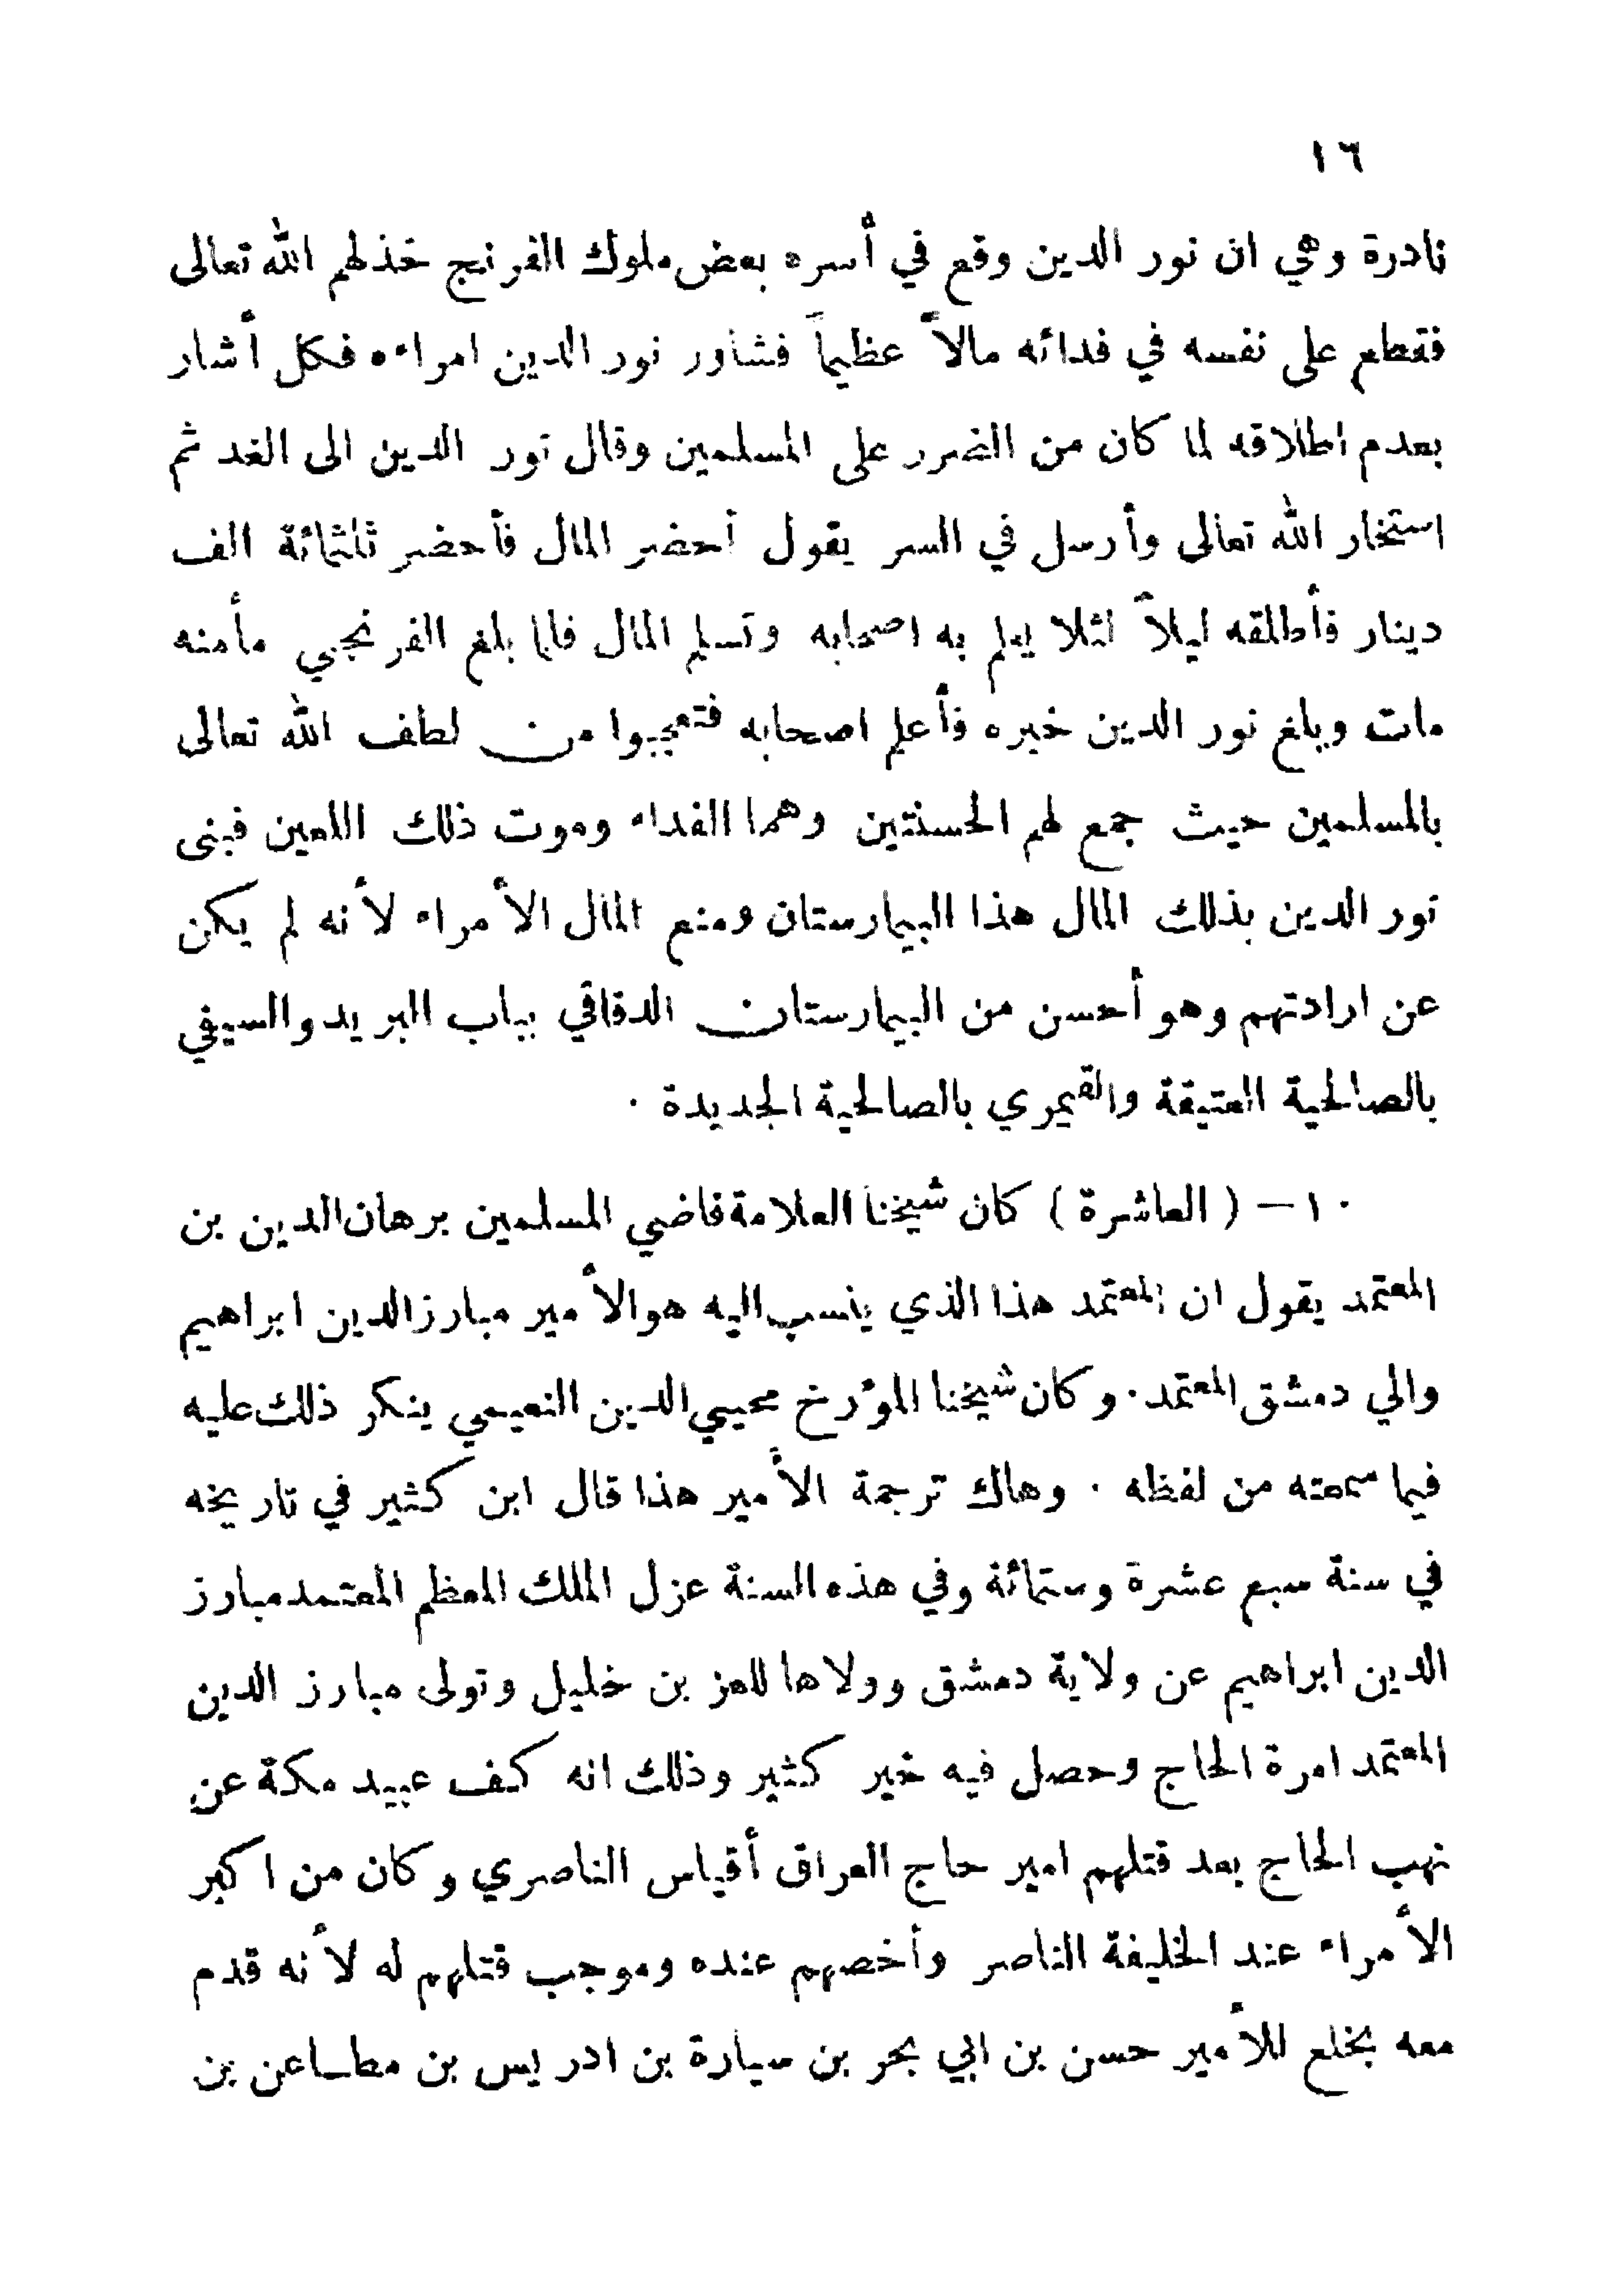 ١٦
نادرة وهي ان نور الدين وقع في أسره بعض ملوك الفرنج خذلهم الله تعالى
فقطع على نفسه في فدائه مالاً عظيماً فشاور نور الدين امراءه فكل أشار
بعدم اطلاقه لما كان من الضرر على المسلمين وقال نور الدين الى الغد ثم
استخار الله تعالى وأرسل في السر يقول أحضر المال فأحضر ثلثمائة الف
دينار فأطلقه ليلاً لئلا يعلم به اصحابه وتسلم المال فلما بلغ الفرنجي مأمنه
مات وبلغ نور الدين خبره فأعلم اصحابه فتعجبوا من لطف الله تعالى
بالمسلمين حيث جمع لهم الحسنتين وهما الفداء وموت ذلك اللعين فبنى
نور الدين بذلك المال هذا البيمارستان ومنع المال الأمراء لأنه لم يكن
عن ارادتهم وهو أحسن من البيمارستان الدقاقي بباب البريد والسيفي
بالصالحية العتيقة والقيمري بالصالحية الجديدة .
١٠ — ( العاشرة ) كان شيخنا العلامة قاضي المسلمين برهان الدين بن
المعتمد يقول ان المعتمد هذا الذي ينسب اليه هو الأمير مبارز الدين ابراهيم
والي دمشق المعتمد . وكان شيخنا المؤرخ محيي الدين النعيمي ينكر ذلك عليه
فيما سمعته من لفظه . وهاك ترجمة الأمير هذا قال ابن كثير في تاريخه
في سنة سبع عشرة وستمائة وفي هذه السنة عزل الملك المعظم المعتمد مبارز
الدين ابراهيم عن ولاية دمشق وولاها للعز بن خليل وتولى مبارز الدين
المعتمد امرة الحاج وحصل فيه خير كثير وذلك انه كف عبيد مكة عن
نهب الحاج بعد قتلهم امير حاج العراق أقياس الناصري وكان من اكبر
الأمراء عند الخليفة الناصر وأخصهم عنده وموجب قتلهم له لأنه قدم
معه بخلع للأمير حسن بن ابي بحر بن سيارة بن ادريس بن مطاعن بن